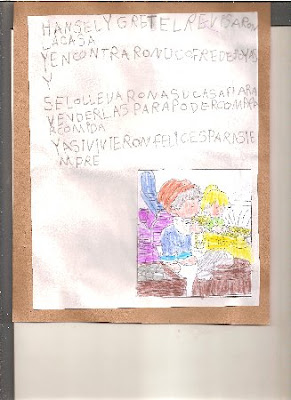 HANSEL Y GRETEL REVISARON
LACASA
YENCONTRARON UCOFREDEJOYAS
Y
SELOLLEVARONASUCASAPARA
VENDERLASPARAPODERCOMPRA
RCOMIDA
YASIVIVIERONFELICESPARASIE
MPRE